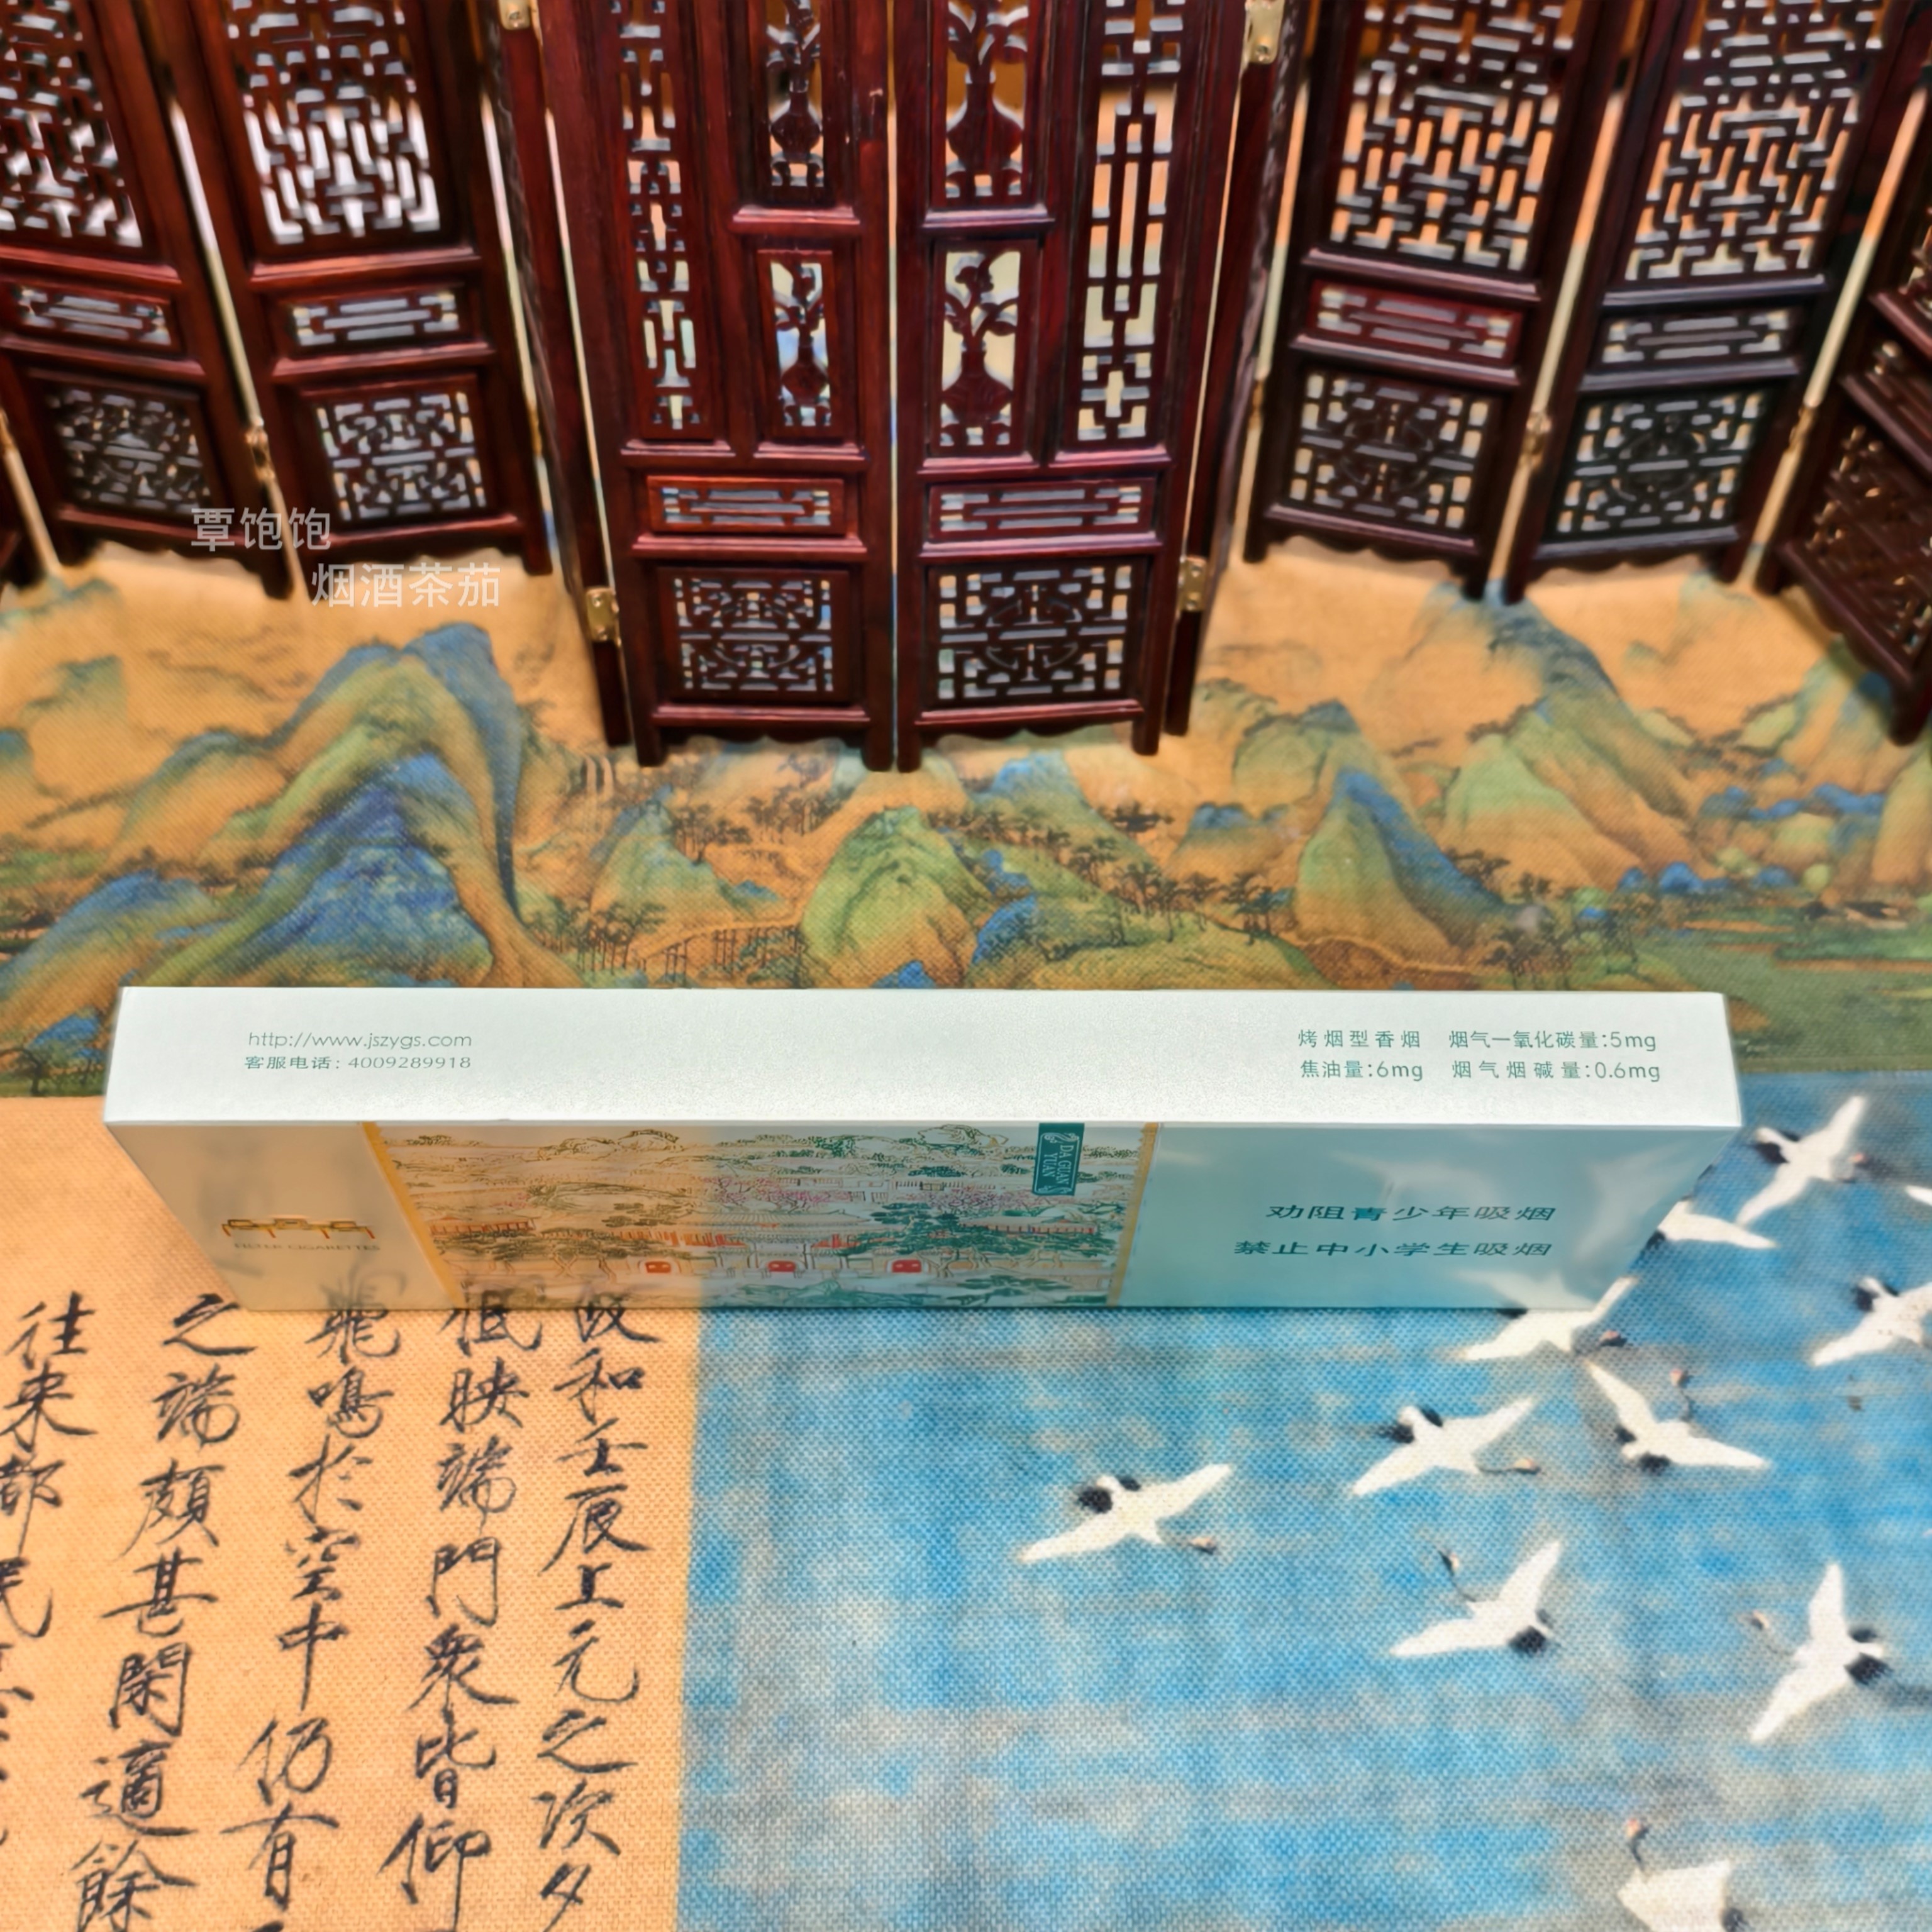 覃饱饱
烟酒茶茄
http://www.jszygs.com
客服电话: 4009289918
烤烟型香烟 烟气一氧化碳量:5mg
焦油量:6mg 烟气烟碱量:0.6mg
DA GUAN
YUAN
FILTER CIGARETTES
劝阻青少年吸烟
禁止中小学生吸烟
和壬辰上元之次夕
低映端門衆皆仰
飛鳴於空中仍有
之端頗甚閑適餘
往来都民